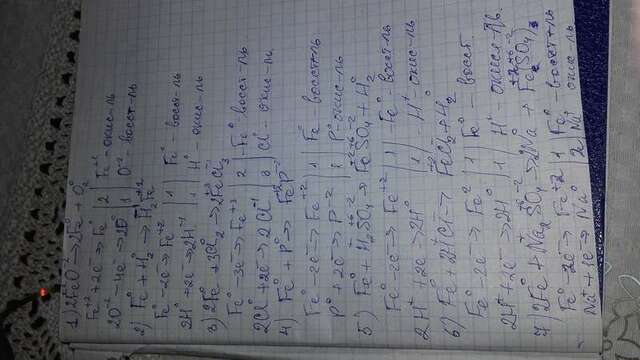 1) 2FeO⁻² → 2Fe⁰ + O₂⁰
Fe⁺² + 2e → Fe⁰ | 2 | Fe⁺² - окис-ль
2O⁻² - 4e → 2O⁰ | 1 | O⁻² - восст-ль
2) Fe⁰ + H₂⁰ → H₂Fe⁺²
Fe⁰ - 2e → Fe⁺² | 1 | Fe⁰ - восст-ль
2H⁰ + 2e → 2H⁻¹ | 1 | H⁰ - окис-ль
3) 2Fe⁰ + 3Cl₂⁰ → 2Fe⁺³Cl₃⁻
Fe⁰ - 3e → Fe⁺³ | 2 | Fe⁰ восст-ль
2Cl⁰ + 2e → 2Cl⁻¹ | 3 | Cl⁰ окис-ль
4) Fe⁰ + P⁰ → Fe⁺²P⁻²
Fe⁰ - 2e → Fe⁺² | 1 | Fe⁰ - восст-ль
P⁰ + 2e → P⁻² | 1 | P⁰ - окис-ль
5) Fe⁰ + H₂⁺S⁺⁶O₄⁻² → Fe⁺²S⁺⁶O₄⁻² + H₂⁰
Fe⁰ - 2e → Fe⁺² | 1 | Fe⁰ - восст-ль
2H⁺ + 2e → 2H⁰ | 1 | H⁺ - окис-ль
6) Fe⁰ + 2H⁺Cl⁻ → Fe⁺²Cl₂⁻ + H₂
Fe⁰ - 2e → Fe² | 1 | Fe⁰ - восст.
2H⁺ + 2e → 2H⁰ | 1 | H⁺ - окисл-ль
7) 2Fe⁰ + Na₂⁺S⁺⁶O₄⁻² → 2Na⁰ +
Fe⁰ - 2e → Fe⁺² | 1 | Fe⁰ - восст-ль
Na⁺ + 1e → Na⁰ | 2 | Na⁺ окис-ль